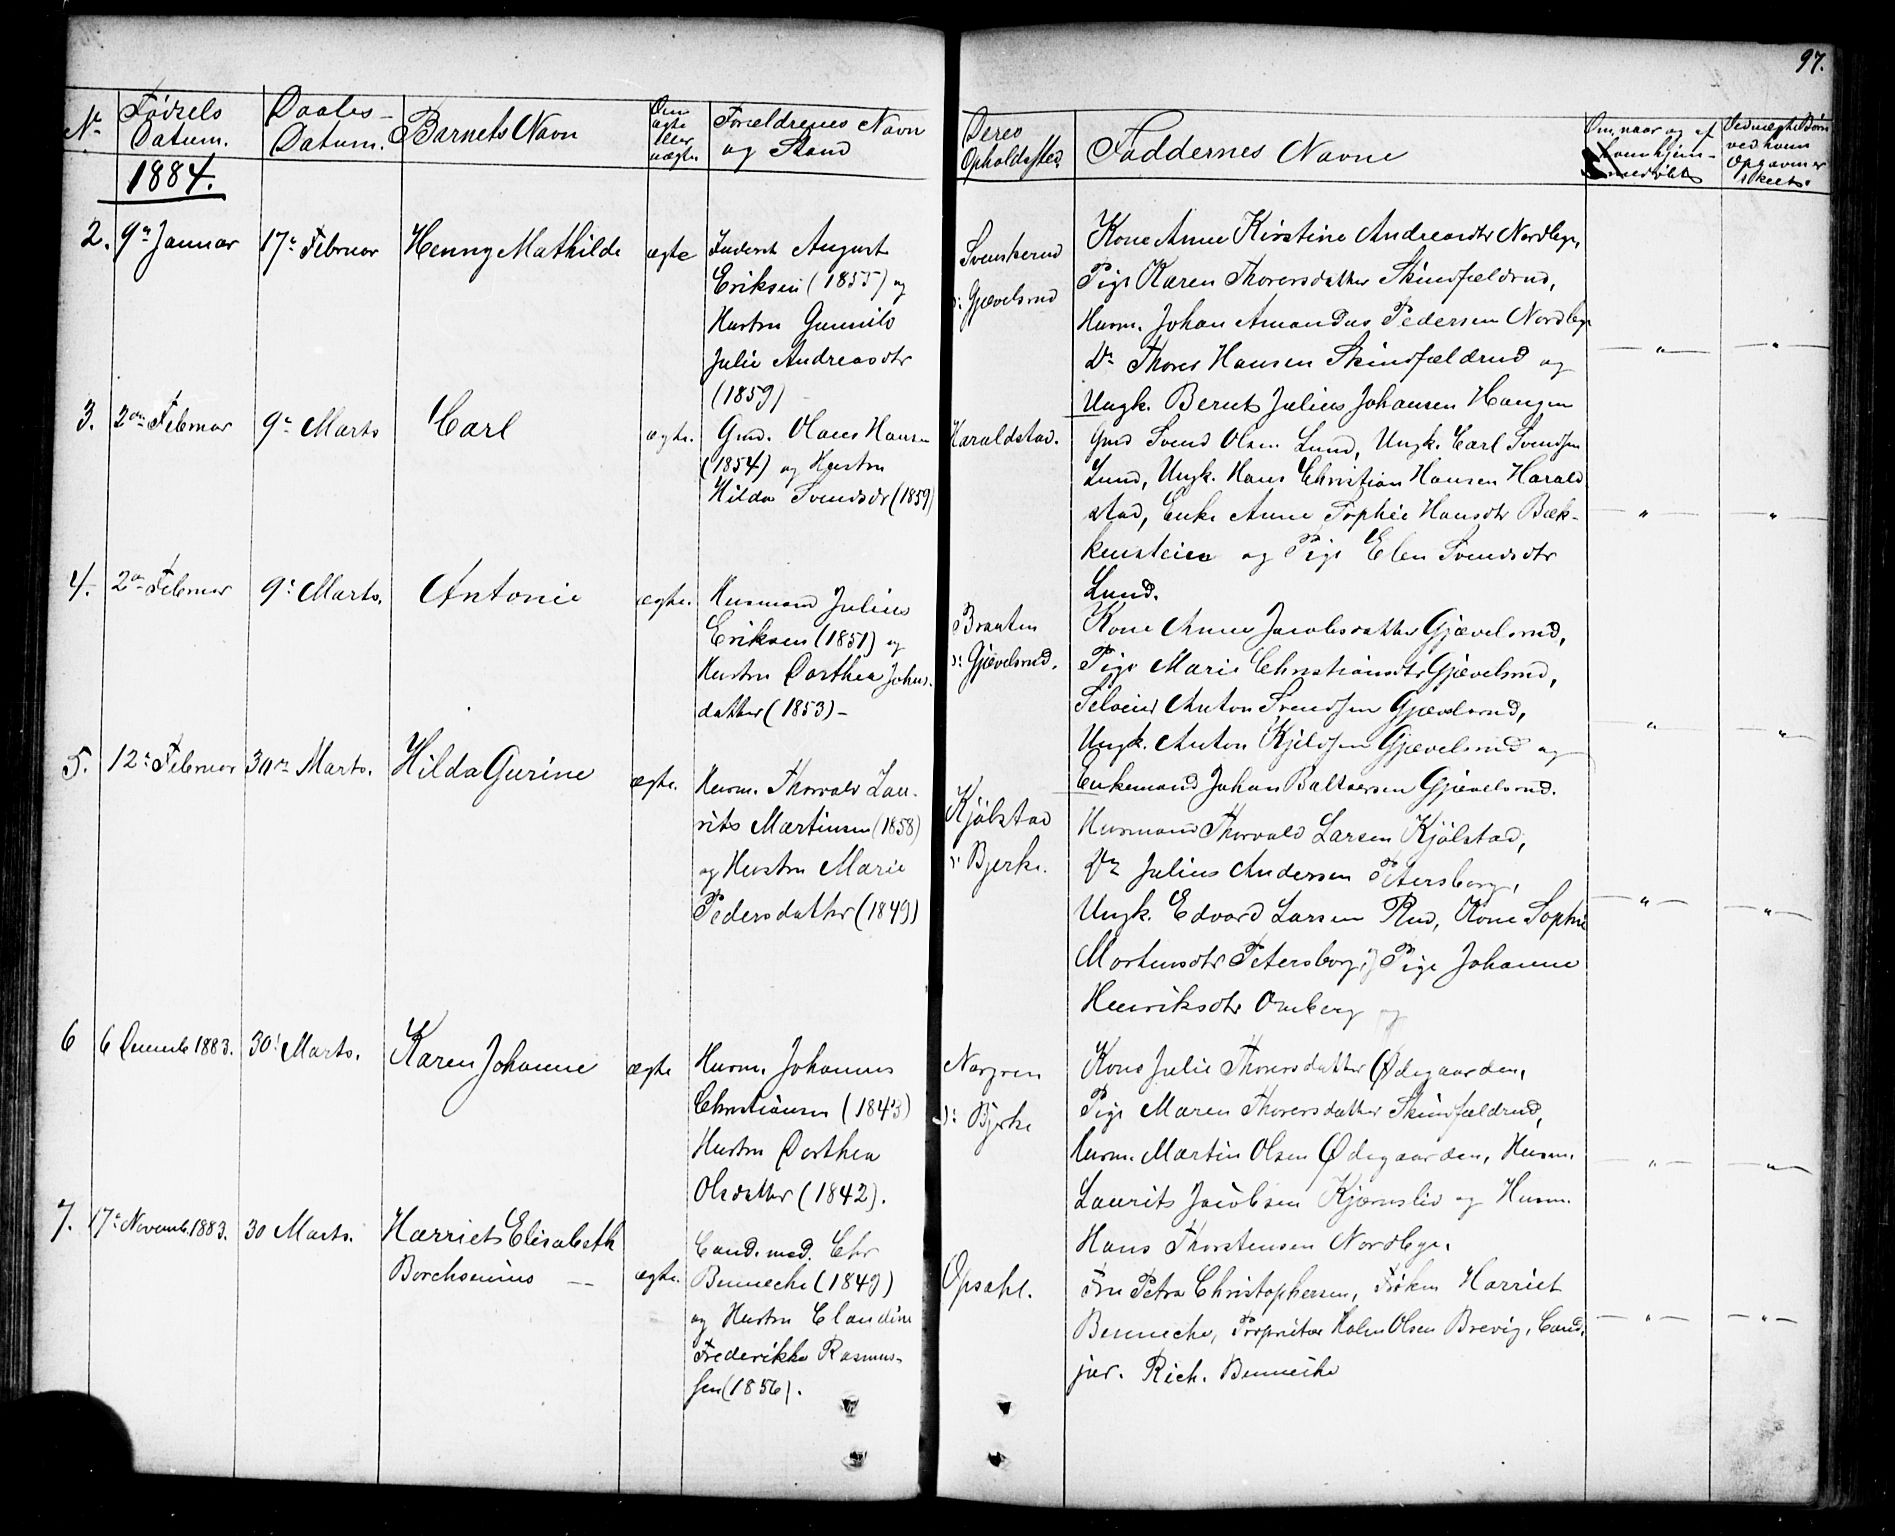 97.
Nr
Fødsels Datum.
Daabs-Datum.
Barnets Navn
Om ægte eller uægte
Forældrenes Navn og Stand
Deres Opholdssted.
Faddernes Navne
Om, naar og af hjem-
Ved uægte Børn ved hvem Opgaven er skeet.
1884.
2.
9de Januar
17de Februar
Henny Mathilde
ægte
Inderst August
Eriksen (1855) og
Hustru Gunnild
Julie Andreasdtr
(1859)
Svenskerud
d: Gjævelsrud
Kone Anne Kirstine Andreasdtr Nordbye,
Pige Karen Thorersdatter Skindfældrud,
Husm. Johan Amandus Pedersen Nordbye
Do Thorer Hansen Skindfældrud og
Ungk. Bernt Julius Johansen Haugen
— " —
— " —
3.
2den Februar
9de Marts
Carl
ægte.
Gmd. Olaus Hansen
(1854) og Hustru
Hilda Svendsdr (1859)
Haraldstad.
Gmd Svend Olsen Lund, Ungk. Carl Svendsen
Lund, Ungk. Hans Christian Hansen Harald
stad, Enke Anne Sophie Hansdtr Bæk-
kensteien og Pige Elen Svendsdtr
Lund.
— " —
— " —
4.
2den Februar
9de Marts.
Antonie
ægte.
Husmand Julius
Eriksen (1851) og
Hustru Dorthea Johns-
datter (1853) -
Braaten
d: Gjævelsrud.
Kone Anne Jacobsdatter Gjævelsrud,
Pige Marie Christiansdtr Gjævelsrud,
Selveier Anton Svendsen Gjævelsrud,
Ungk. Anton Kjeldsen Gjævelsrud og
Enkemand Johan Baltsersen Gjævelsrud.
— " —
— " —
5.
12te Februar
30te Marts.
Hilda Gurine
ægte.
Husm. Thorvald Lau-
rits Martinsen (1858)
og Hustru Marie
Pedersdatter (1849)
Kjølstad
d: Bjerke.
Husmand Thorvald Larsen Kjølstad,
Do Julius Andersen Petersborg,
Ungk. Edvard Larsen Rud, Kone Sophie
Mortensdtr Petersborg, og Pige Johanne
Henriksdtr Omberg
— " —
— " —
6
6 Decemb. 1883.
30! Marts.
Karen Johanne
ægte
Husm. Johannes
Christiansen (1843)
Hustru Dorthea
Olsdatter (1842).
Norgren
d: Bjerke
Kone Julie Thorersdatter Ødegaarden,
Pige Maren Thorersdatter Skindfældrud,
Husm. Martin Olsen Ødegaarden, Husm.
Laurits Jacobsen Kjærnslid og Husm.
Hans Thorstensen Nordbye.
— " —
— " —
7.
17de Novemb. 1883.
30 Marts.
Harriet Elisabeth
Borchsenius —
ægte.
Cand. med. Chr
Benneche (1849)
og Hustru Claudine
Frederikke Rasmus-
sen (1856).
Opsahl.
Fru Petra Christophersen, Frøken Harriet
Benneche, Proprietær Holm Olsen Brevig, Cand.
jur. Rich. Benneche
— " —
— " —